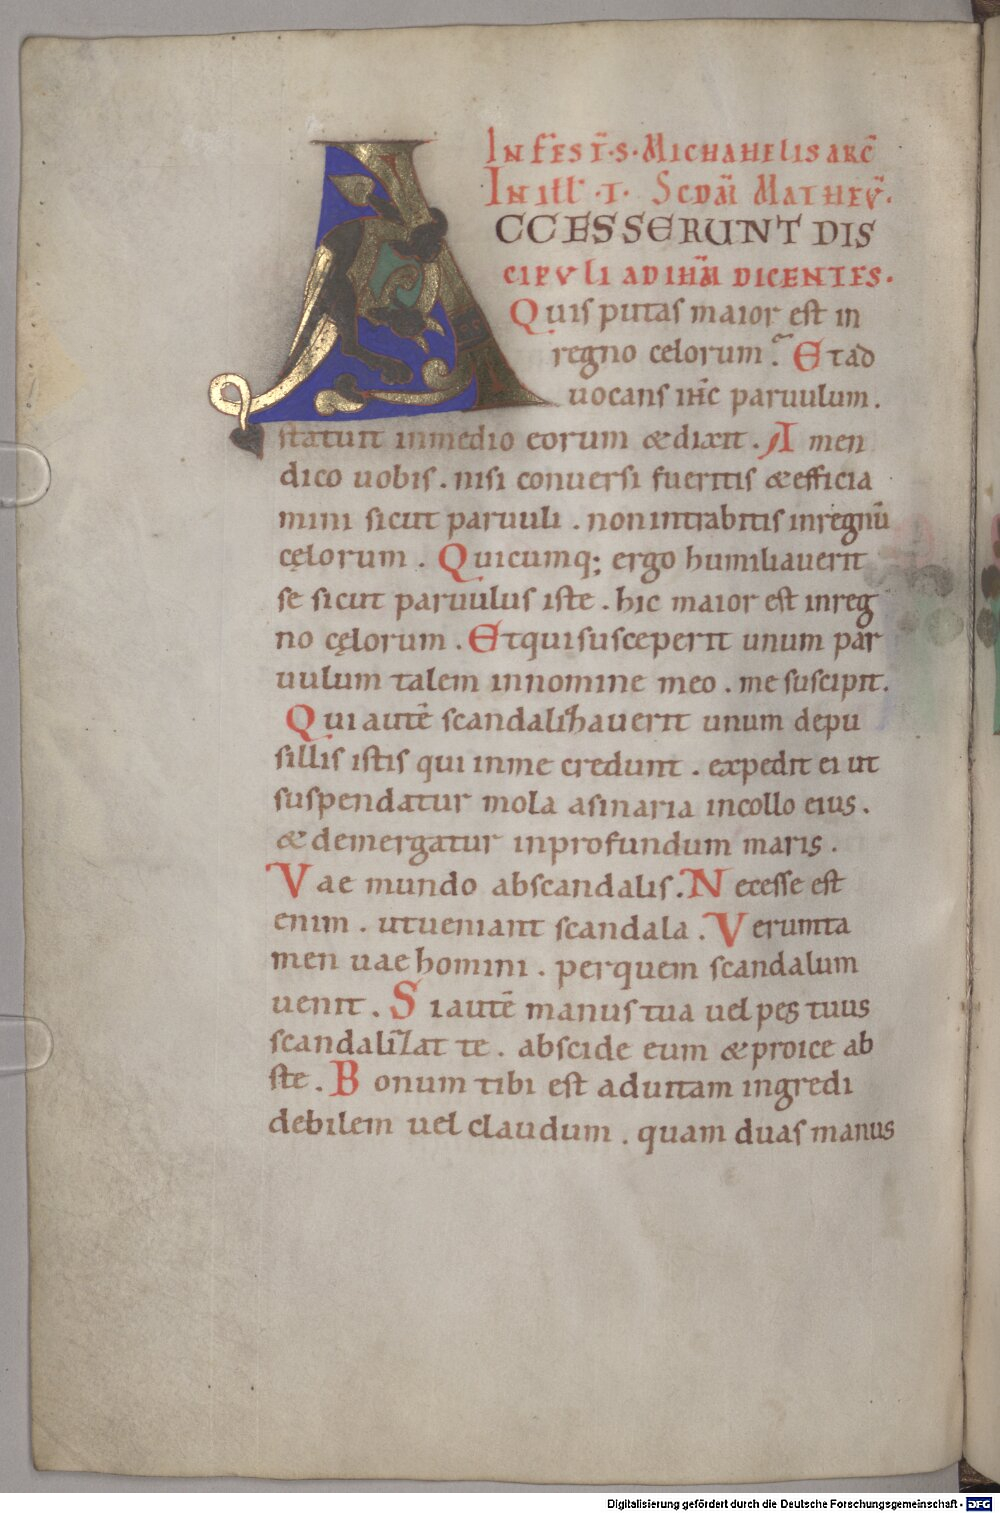 IN FES̄ T̄·S·MICHAHELIS ARC̄
IN ILL̄·T· SCDM̄ MATHEV̄·
A CCESSERUNT DIS
CIPVLI AD IHM̄ DICENTES·
Quis putas maior est in
regno celorum? Et ad
uocans ihc̄ paruulum.
statuit inmedio eorum & dixit. Amen
dico uobis. nisi conuersi fueritis & efficia
mini sicut paruuli. non intrabitis inregnū
cęlorum. Quicumq; ergo humiliauerit
se sicut paruulus iste. hic maior est inreg
no cęlorum. Et qui susceperit unum par
uulum talem innomine meo. me suscipit.
Qui autē scandalizauerit unum depu
sillis istis qui inme credunt. expedit ei ut
suspendatur mola asinaria incollo eius.
& demergatur inprofundum maris.
Vae mundo abscandalis. Necesse est
enim. utueniant scandala. Verumta
men uae homini. perquem scandalum
uenit. Si autē manus tua uel pes tuus
scandalizat te. abscide eum & proice ab
ste. Bonum tibi est aduitam ingredi
debilem uel claudum. quam duas manus
Digitalisierung gefördert durch die Deutsche Forschungsgemeinschaft - DFG